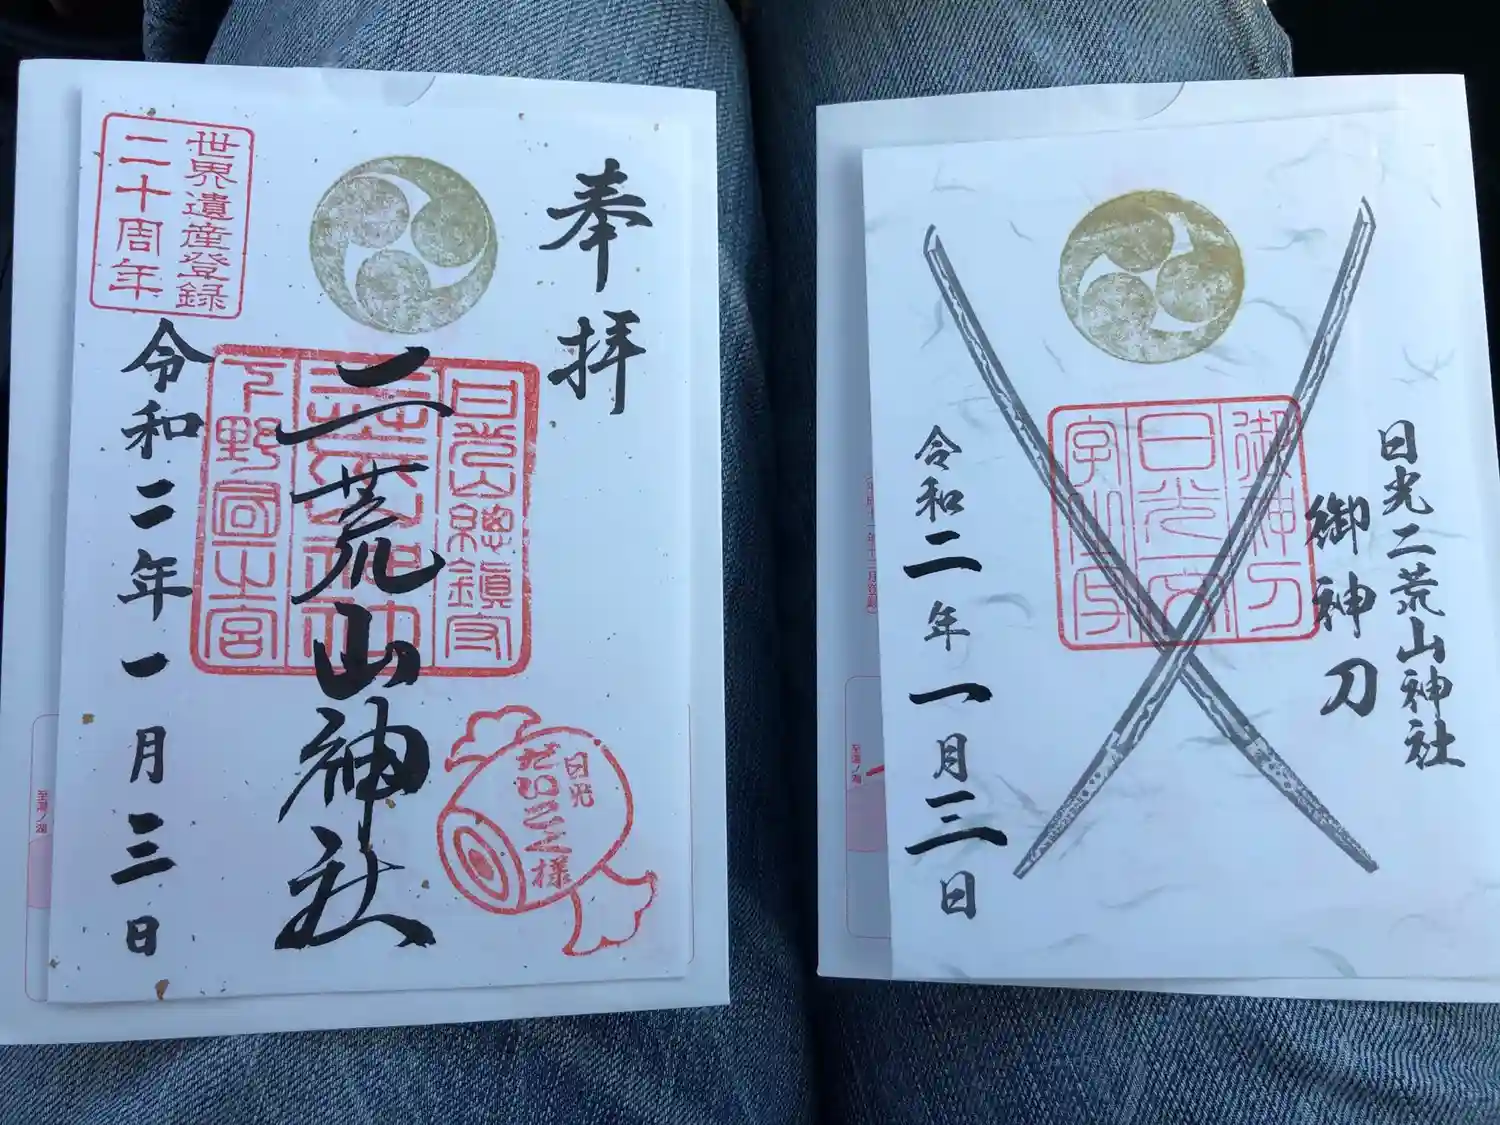 奉拝
日光山総鎮守
二荒山神社
下野國一之宮
世界遺産登録
二十周年
令和二年一月三日
日光
だいこく様
日光二荒山神社
御神刀
令和二年一月三日